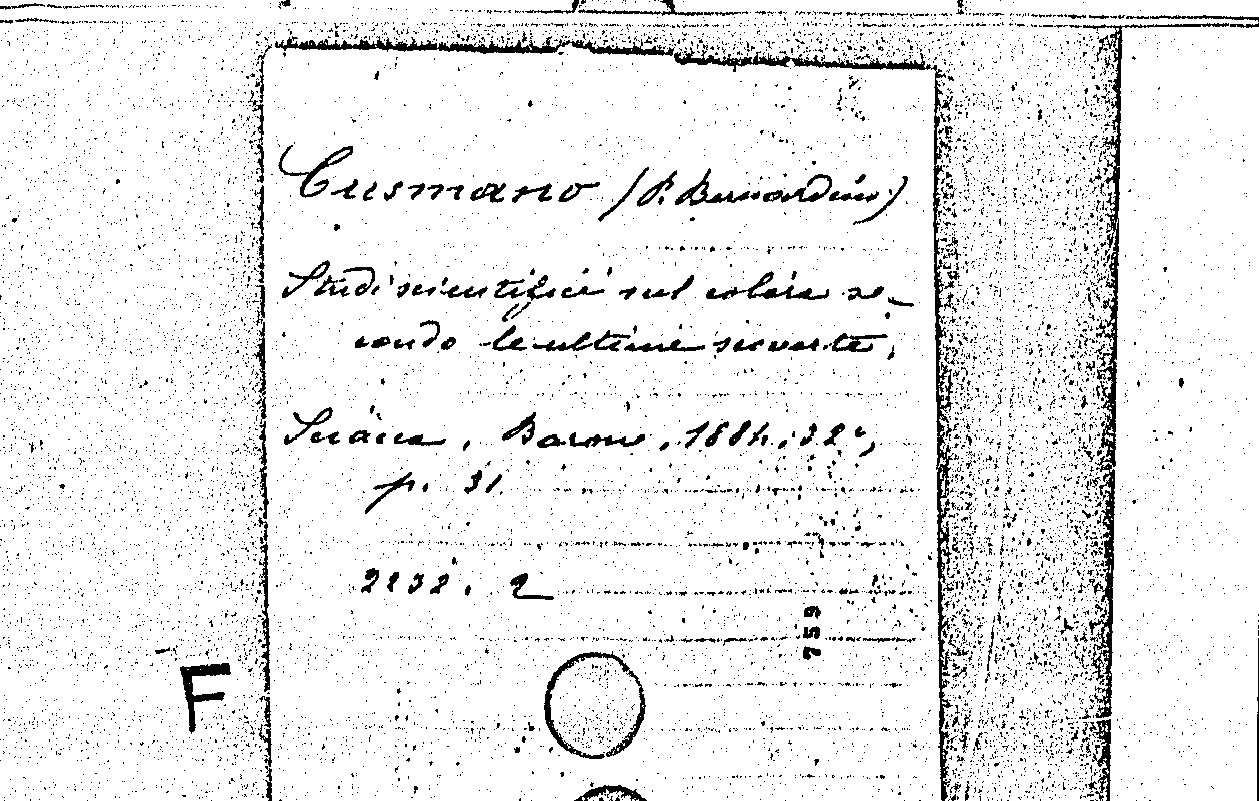 Cusmano (P. Bernardino)
Studi scientifici sul colera se-
condo le ultime scoverte,
Sciacca, Barone, 1884, 32°,
p. 31
2232. 2
759
F